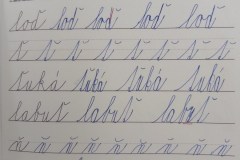 loď loď loď loď loď
ť ť ť ť ť ť ť ť ť
ťuká ťuká ťuká ťuká
labuť labuť labuť
ň ň ň ň ň ň ň ň ň